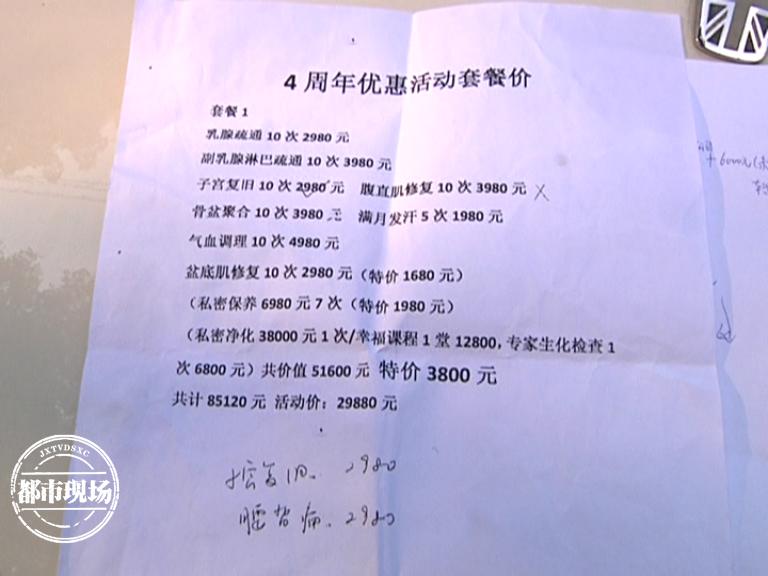 4 周年优惠活动套餐价
套餐 1
乳腺疏通 10 次 2980 元
副乳腺淋巴疏通 10 次 3980 元
子宫复旧 10 次 2980 元 腹直肌修复 10 次 3980 元 X
骨盆聚合 10 次 3980 元 满月发汗 5 次 1980 元
气血调理 10 次 4980 元
盆底肌修复 10 次 2980 元（特价 1680 元）
（私密保养 6980 元 7 次（特价 1980 元）
（私密净化 38000 元 1 次/幸福课程 1 堂 12800，专家生化检查 1
次 6800 元）共价值 51600 元 特价 3800 元
共计 85120 元 活动价：29880 元
复旧. 2980
腰背痛. 2980
+6000元
JXTVDSXC
都市现场